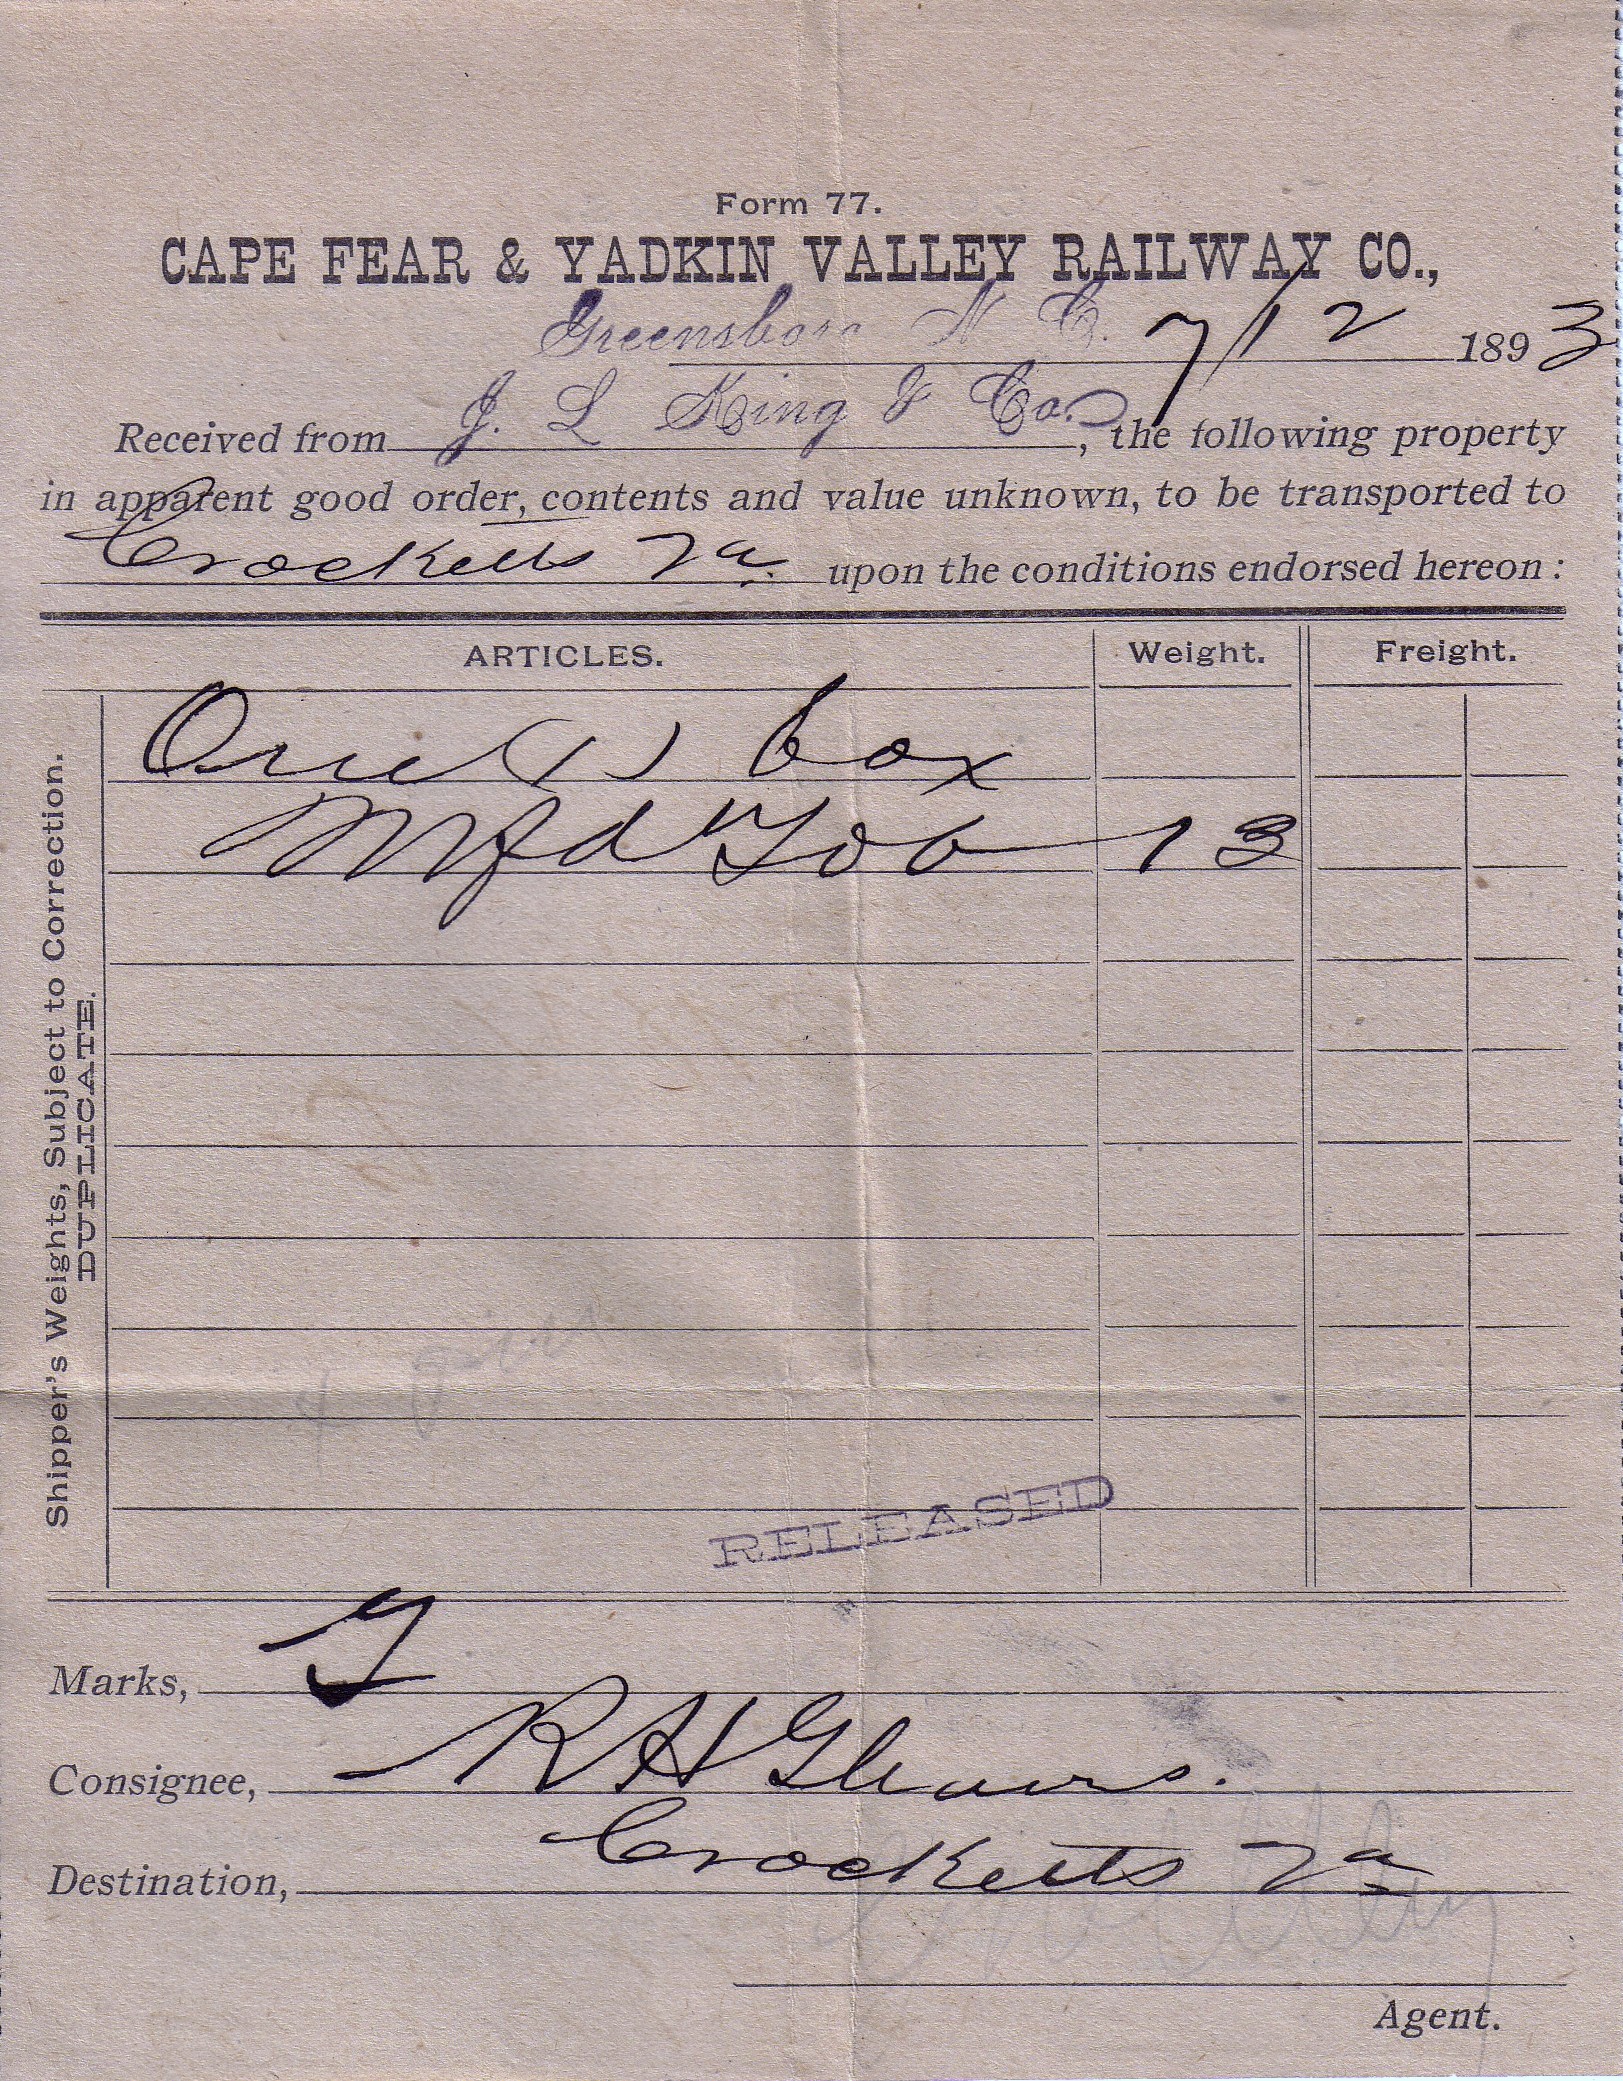 Form 77.
CAPE FEAR & YADKIN VALLEY RAILWAY CO.,
Greensboro N. C. 7/12 1893
Received from J. L King & Co., the following property
in apparent good order, contents and value unknown, to be transported to
Crocketts Va. upon the conditions endorsed hereon:
ARTICLES. Weight. Freight.
One (1) box
Mfd Tob 13
Shipper's Weights, Subject to Correction.
DUPLICATE.
RELEASED
Marks, G
Consignee, R H
Destination, Crocketts Va
Agent.